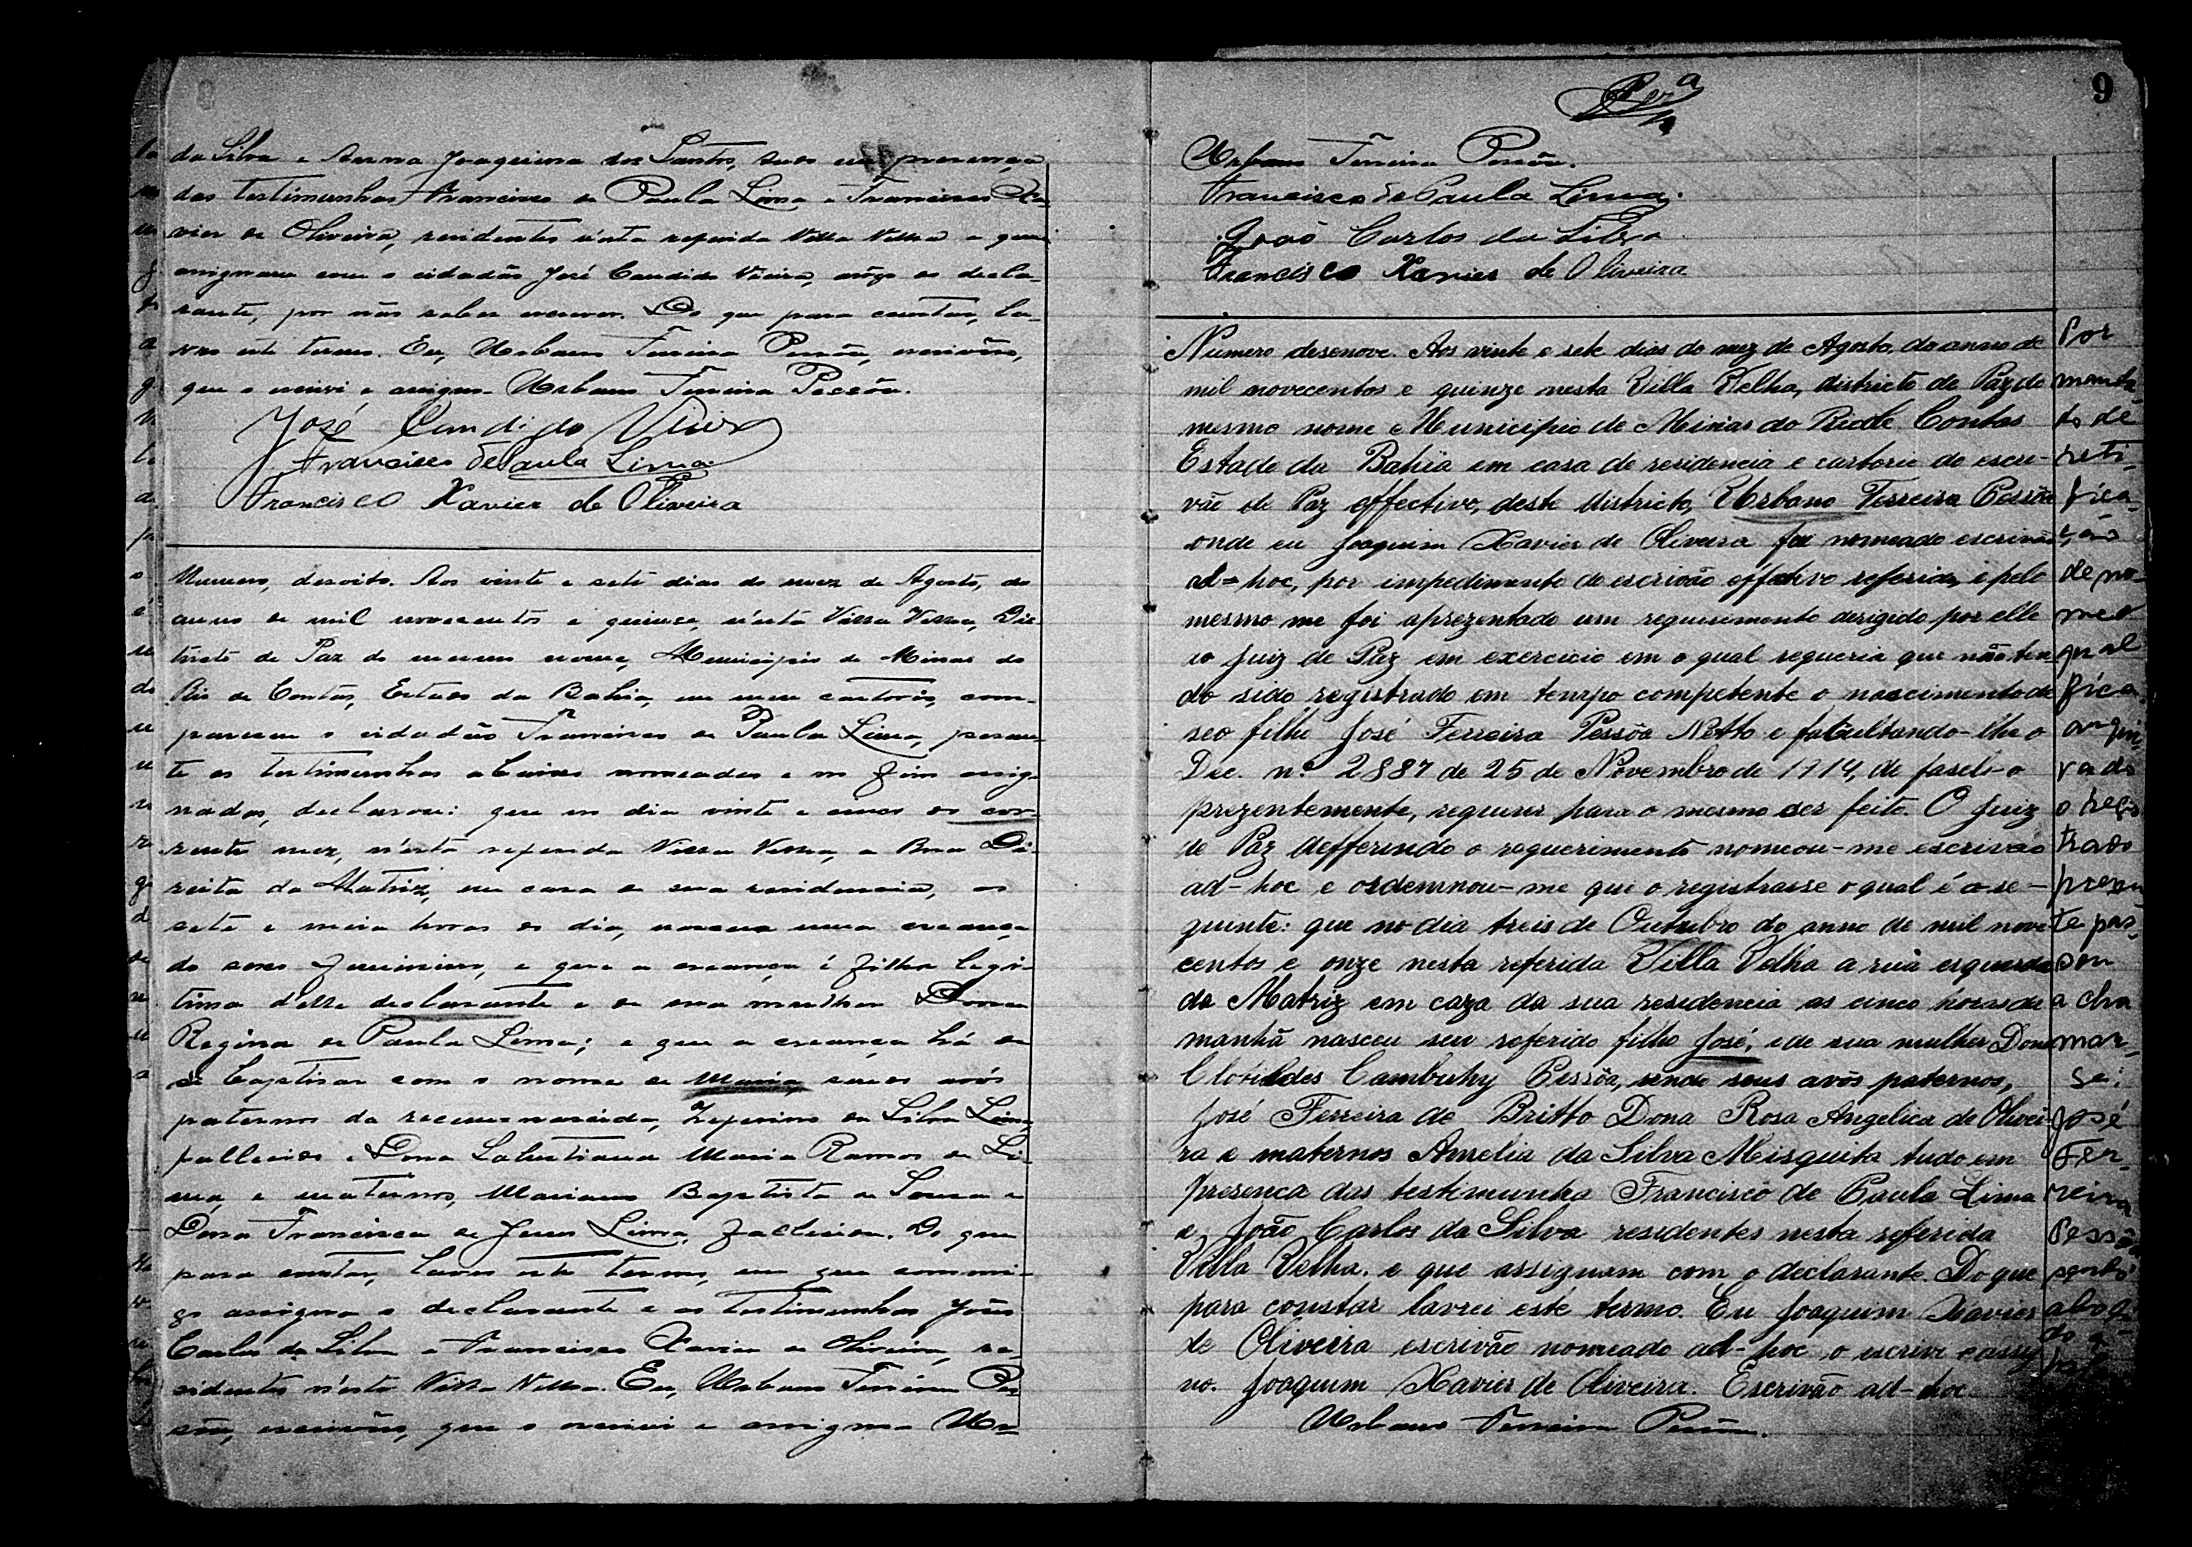 da Silva e Anna Joaquina dos Santos, tudo em presença
das testimunhas Francisco de Paula Lima e Francisco Xa-
vier de Oliveira, residentes n'esta referida Villa Velha e que
assignam com o cidadão José Candido Vieira, arôgo do decla-
rante, por não saber escrever. Do que para constar, la-
vro este termo. Eu, Urbano Ferreira Pessôa, escrivão,
que o escrivi e assigno. Urbano Ferreira Pessôa.
José Candido Vieira
Francisco de Paula Lima
Francisco Xavier de Oliveira
Numero, desoito. Aos vinte e sete dias do mez de Agosto, do
anno de mil novecentos e quinse, n'esta Villa Velha, Dis-
tricto de Paz do mesmo nome, Municipio de Minas do
Rio de Contas, Estado da Bahia, em meu cartorio, com-
pareceu o cidadão Francisco de Paula Lima, peran-
te as testimunhas abaixo nomeadas e no fim assig-
nadas, declarou: que no dia vinte e cinco do cor-
rente mez, n'esta referida Villa Velha, a Rua Di-
reita da Matriz, em casa de sua residencia, as
sete e meia horas do dia, nasceu uma creança
do sexo feminino, e que a creança é filha legi-
tima delle declarante e de sua mulher Dona
Regina de Paula Lima; e que a creança há de
se baptisar com o nome de Maria, sendo avós
paternos da recem-nascida, Zeferino da Silva Lima,
fallecido e Dona Salustiana Maria Ramos de Li-
ma, e maternos, Mariano Baptista de Sousa e
Dona Francisca de Jesus Lima, fallecida. Do que
para constar, lavro este termo, em que commi-
go assigna o declarante e as testimunhas João
Carlos da Silva e Francisco Xavier de Oliveira, re-
sidentes n'esta Villa Velha. Eu, Urbano Ferreira Pes-
sôa, escrivão, que o escrivi e assigno Ur-
9
Urbano Ferreira Pessôa.
Francisco de Paula Lima.
João Carlos da Silva
Francisco Xavier de Oliveira
Numero desenove. Aos vinte e sete dias do mez de Agosto, do anno de
mil novecentos e quinze nesta Villa Velha, districto de Paz do
mesmo nome e Municipio de Minas do Rio de Contas
Estado da Bahia em casa de residencia e cartorio do escri-
vão de Paz effectivo, deste districto, Urbano Ferreira Pessôa
onde eu Joaquim Xavier de Oliveira foi nomeado escrivão
ad=hoc, por impedimento do escrivão effectivo referido, e pelo
mesmo me foi aprezentado um requerimento derigido por elle
ao Juiz de Paz em exercicio em o qual requeria que não ten
do sido registrado em tempo competente o nascimento de
seo filho José Ferreira Pessôa Netto e facultando-lhe o
Dec. nº 2887 de 25 de Novembro de 1914, de faselo o
prezentemente, requerer para o mesmo ser feito. O Juiz
de Paz defferindo o requerimento nomeou-me escrivão
ad-hoc e ordemnou-me que o registrasse o qual é o se-
guinte: que no dia treis de Outubro do anno de mil nove
centos e onze nesta referida Villa Velha a rua esquerda
da Matriz em caza da sua residencia as cinco horas da
manhã nasceu seu referido filho José, e de sua mulher Dona
Clotildes Cambuhy Pessôa, sendo seus avôs paternos,
José Ferreira de Britto Dona Rosa Angelica de Olivei-
ra e maternos Amelia da Silva Misquita tudo em
presença das testimunha Francisco de Paula Lima
e João Carlos da Silva residentes nesta referida
Villa Velha. e que assignam com o declarante. Do que
para constar lavrei este termo. Eu Joaquim Xavier
de Oliveira escrivão nomeado ad-hoc o escrivi e assig
no. Joaquim Xavier de Oliveira. Escrivão ad-hoc
Urbano Ferreira Pessôa.
Por
manda-
to de
reti-
fica-
ção
de no-
me o
qual
fica
arqui-
vado
o regis
trado
presen
te pas-
sou
a cha
mar-
se:
José
Fer-
reira
Pessôa